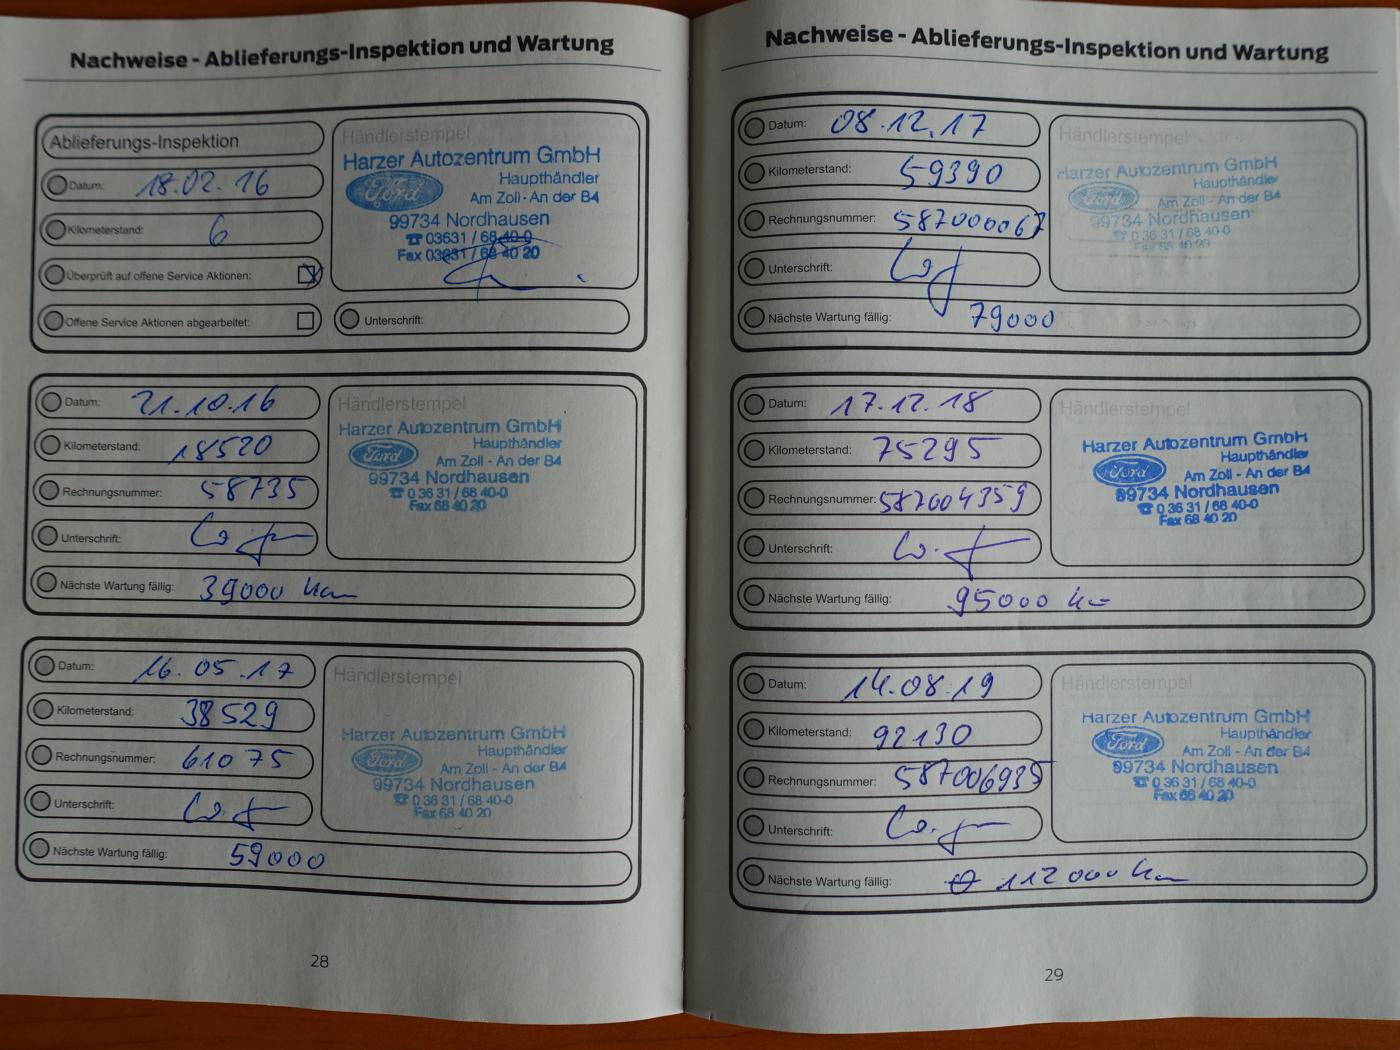 Nachweise - Ablieferungs-Inspektion und Wartung
Ablieferungs-Inspektion
Datum: 18.02.16
Kilometerstand: 6
Überprüft auf offene Service Aktionen:
Offene Service Aktionen abgearbeitet:
Händlerstempel
Harzer Autozentrum GmbH
Ford
Haupthändler
Am Zoll - An der B4
99734 Nordhausen
☎ 03631 / 68 40-0
Fax 03631 / 68 40 20
Unterschrift:
Datum: 21.10.16
Kilometerstand: 18520
Rechnungsnummer: 58735
Unterschrift:
Nächste Wartung fällig: 39000 km
Händlerstempel
Harzer Autozentrum GmbH
Ford
Haupthändler
Am Zoll - An der B4
99734 Nordhausen
☎ 0 36 31 / 68 40-0
Fax 68 40 20
Datum: 16.05.17
Kilometerstand: 38529
Rechnungsnummer: 61075
Unterschrift:
Nächste Wartung fällig: 59000
Händlerstempel
Harzer Autozentrum GmbH
Ford
Haupthändler
Am Zoll - An der B4
99734 Nordhausen
☎ 0 36 31 / 68 40-0
Fax 68 40 20
28
Nachweise - Ablieferungs-Inspektion und Wartung
Datum: 08.12.17
Kilometerstand: 59390
Rechnungsnummer: 587000067
Unterschrift:
Nächste Wartung fällig: 79000
Händlerstempel
Harzer Autozentrum GmbH
Ford
Haupthändler
Am Zoll - An der B4
99734 Nordhausen
☎ 0 36 31 / 68 40-0
Fax 68 40 20
Datum: 17.12.18
Kilometerstand: 75295
Rechnungsnummer: 587004359
Unterschrift:
Nächste Wartung fällig: 95000 km
Händlerstempel
Harzer Autozentrum GmbH
Ford
Haupthändler
Am Zoll - An der B4
99734 Nordhausen
☎ 0 36 31 / 68 40-0
Fax 68 40 20
Datum: 14.08.19
Kilometerstand: 92130
Rechnungsnummer: 587006935
Unterschrift:
Nächste Wartung fällig: 112000 km
Händlerstempel
Harzer Autozentrum GmbH
Ford
Haupthändler
Am Zoll - An der B4
99734 Nordhausen
☎ 0 36 31 / 68 40-0
Fax 68 40 20
29